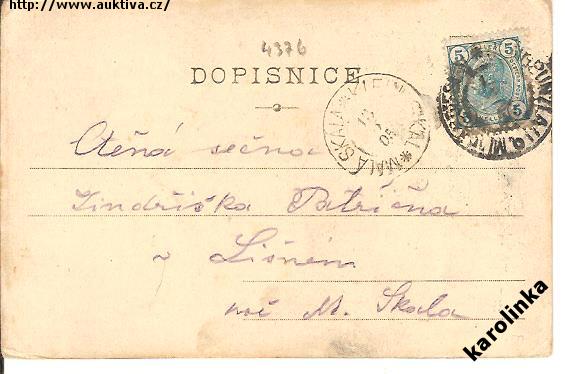 http://www.auktiva.cz/
4376
DOPISNICE
5 5
MALÁ SKÁLA * KLEINSKAL *
Ctěná slečna
Jindřiška Patřičná
v Lišném
nč. M. Skala
karolinka